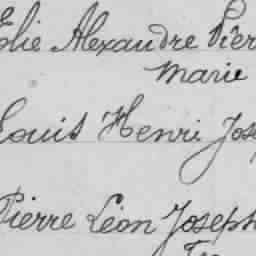 Elie Alexandre Pier
Marie
Louis Henri Jose
Pierre Léon Joseph